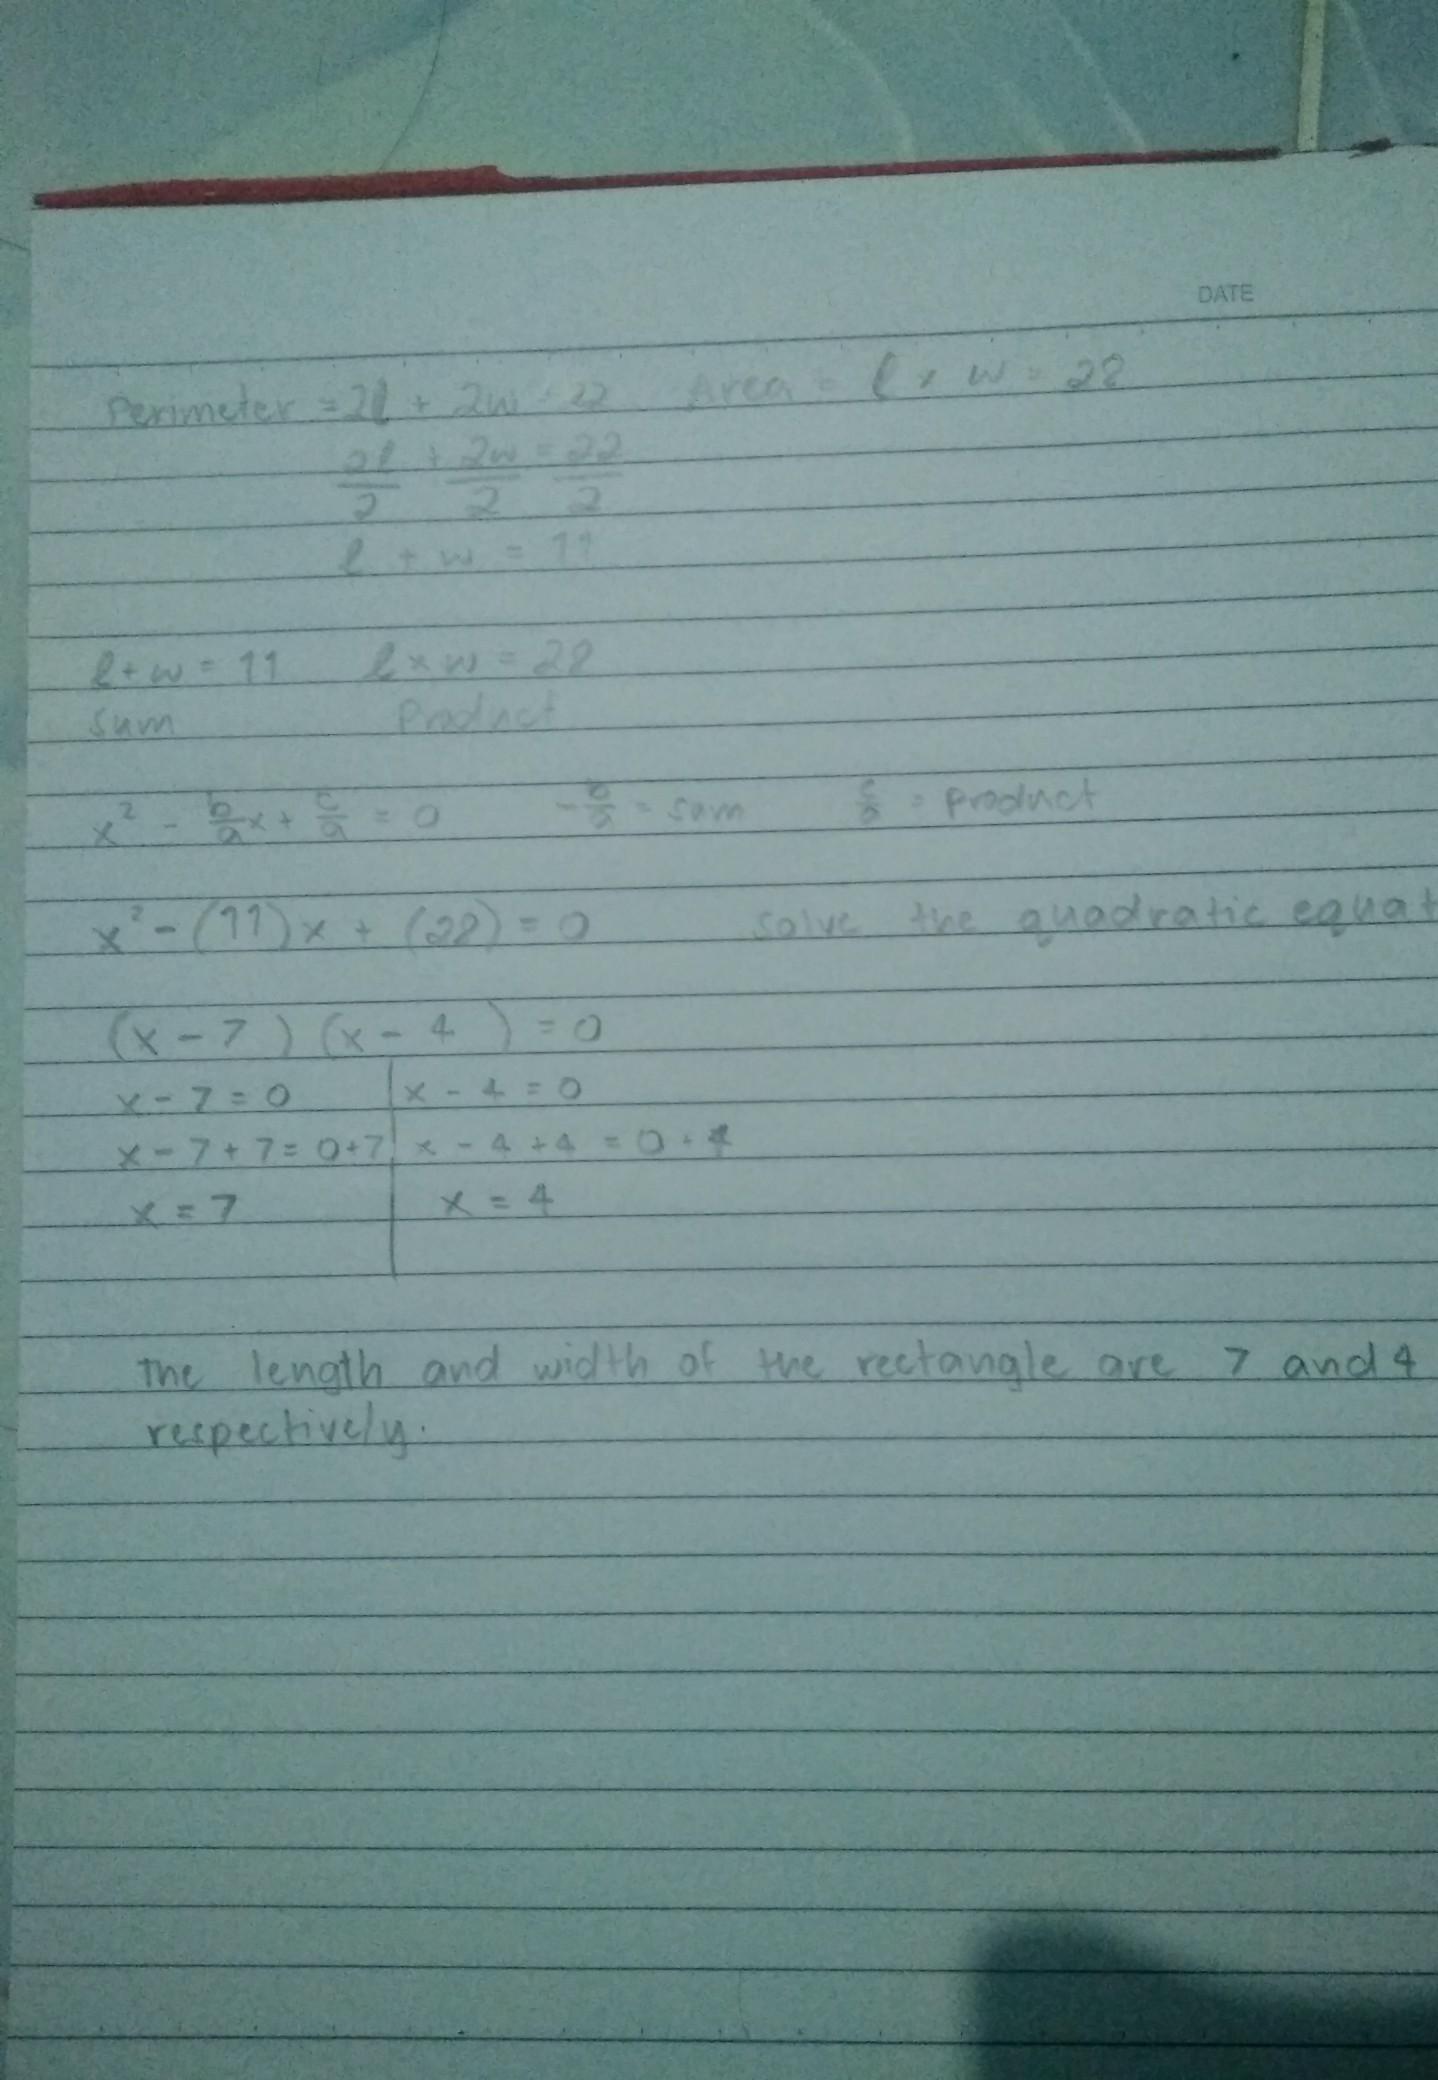 DATE
Perimeter = 2l + 2w = 22 Area = l × w = 28
2l/2 + 2w/2 = 22/2
l + w = 11
l + w = 11 l × w = 28
sum Product
x² - b/a x + c/a = 0 -b/a = sum c/a = product
x² - (11)x + (28) = 0 solve the quadratic equat
(x - 7) (x - 4) = 0
x - 7 = 0 x - 4 = 0
x - 7 + 7 = 0 + 7 x - 4 + 4 = 0 + 4
x = 7 x = 4
The length and width of the rectangle are 7 and 4
respectively.